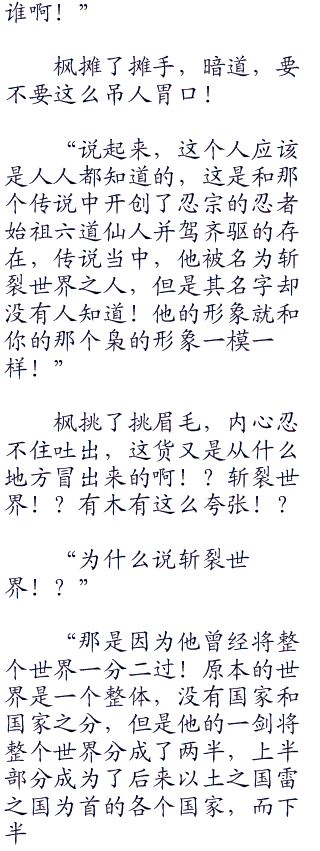 谁啊！”
枫摊了摊手，暗道，要
不要这么吊人胃口！
“说起来，这个人应该
是人人都知道的，这是和那
个传说中开创了忍宗的忍者
始祖六道仙人并驾齐驱的存
在，传说当中，他被名为斩
裂世界之人，但是其名字却
没有人知道！他的形象就和
你的那个枭的形象一模一
样！”
枫挑了挑眉毛，内心忍
不住吐出，这货又是从什么
地方冒出来的啊！？斩裂世
界！？有木有这么夸张！？
“为什么说斩裂世
界！？”
“那是因为他曾经将整
个世界一分二过！原本的世
界是一个整体，没有国家和
国家之分，但是他的一剑将
整个世界分成了两半，上半
部分成为了后来以土之国雷
之国为首的各个国家，而下
半